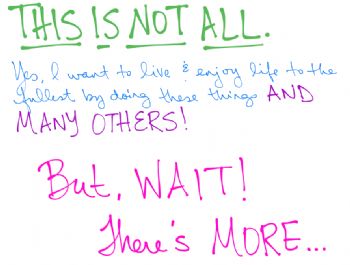 THIS IS NOT ALL.
Yes, I want to live & enjoy life to the
fullest by doing these things AND
MANY OTHERS!
But, WAIT!
There's MORE...